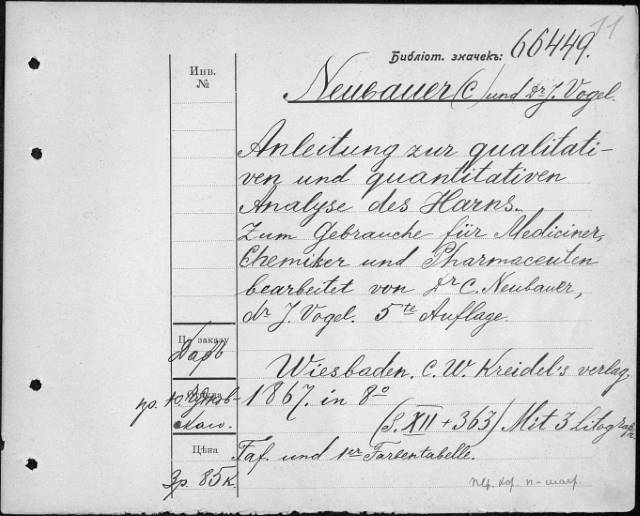 11
Библіот. значекъ: 66449.
Инв.
№
Neubauer (C.) und Dr J. Vogel.
Anleitung zur qualitati-
ven und quantitativen
Analyse des Harns.
Zum Gebrauche für Mediciner,
Chemiker und Pharmaceuten
bearbeitet von Dr C. Neubauer,
dr J. Vogel. 5te Auflage.
По заказу
Даръ
Wiesbaden. C. W. Kreidel's verlag.
пр.
1867. in 8o
(S. XII + 363) Mit 3 litograph
Цѣна
Taf. und 1er Farbentabelle.
3р. 85к.